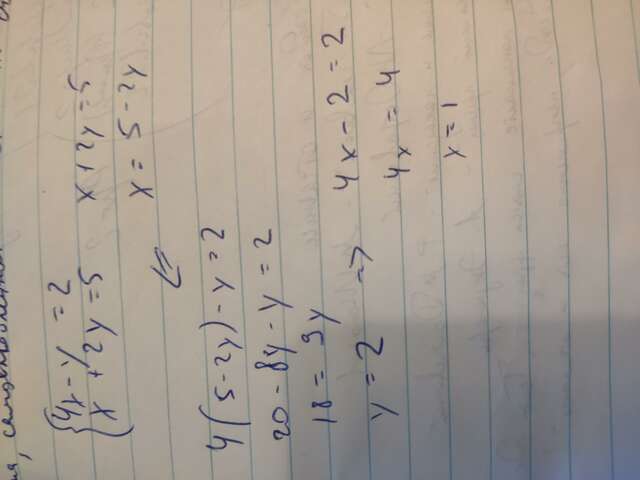 {4x - y = 2
x + 2y = 5
x + 2y = 5
x = 5 - 2y
⇐
4(5 - 2y) - y = 2
20 - 8y - y = 2
18 = 9y
y = 2 ⇒ 4x - 2 = 2
4x = 4
x = 1